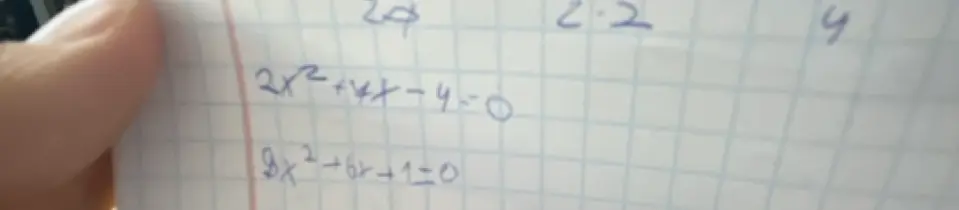 2a 2·2 4
2x²+4x-4=0
8x²+6x+1=0